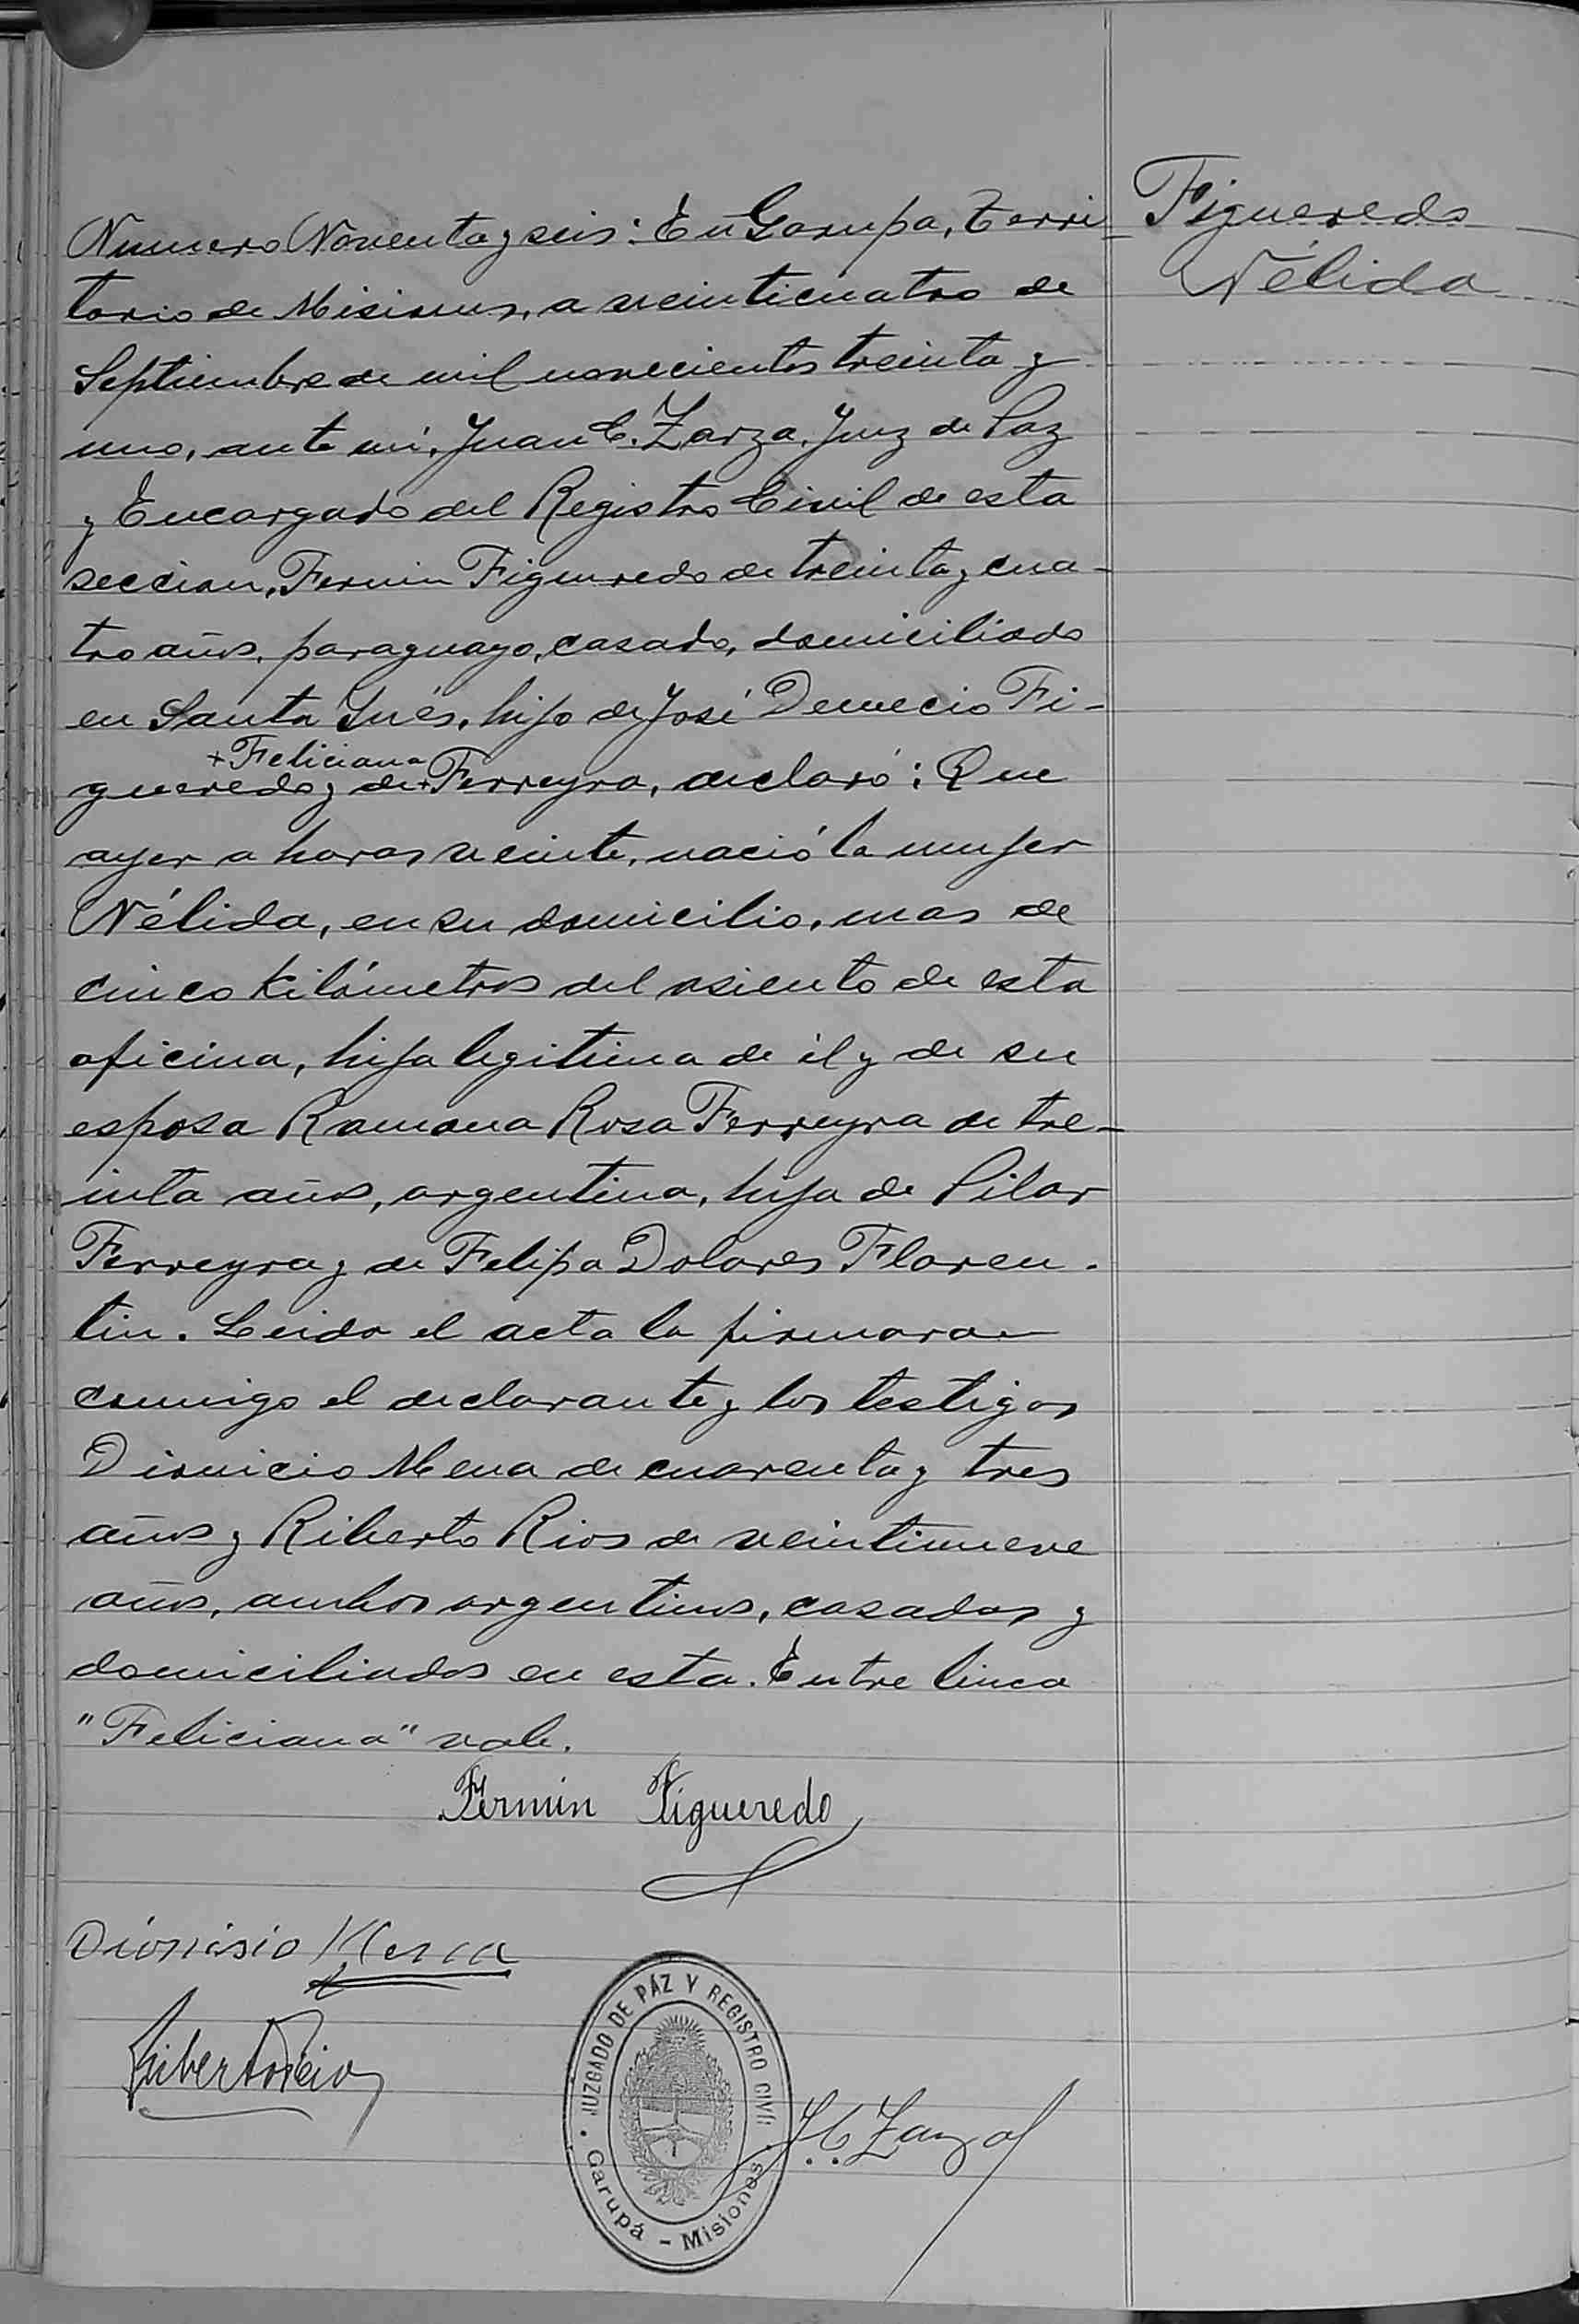 Numero Noventa y seis: En Garupa, Terri-
torio de Misiones, a veinticuatro de
Septiembre de mil novecientos treinta y
uno, ante mi, Juan C. Zarza, Juez de Paz
y Encargado del Registro Civil de esta
seccion, Fermin Figueredo de treinta y cua-
tro años, paraguayo, casado, domiciliado
en Santa Inés, hijo de José Demecio Fi-
+ Feliciana
gueredo y de + Ferreyra, declaró: Que
ayer a horas veinte, nació la mujer
Nélida, en su domicilio, mas de
cinco kilómetros del asiento de esta
oficina, hija legitima de él y de su
esposa Ramona Rosa Ferreyra de tre-
inta años, argentina, hija de Pilar
Ferreyra y de Felipa Dolores Floren-
tin. Leida el acta la firmaron
conmigo el declarante y los testigos
Dionicio Mena de cuarenta y tres
años y Riberto Rios de veintinueve
años, ambos argentinos, casados y
domiciliados en esta. Entre linea
"Feliciana" vale.
Fermin Figueredo
Dionisio Mena
Riberto Rios
J. C. Zarza
JUZGADO DE PÁZ Y REGISTRO CIVIL
Garupá - Misiones
Figueredo
Nélida